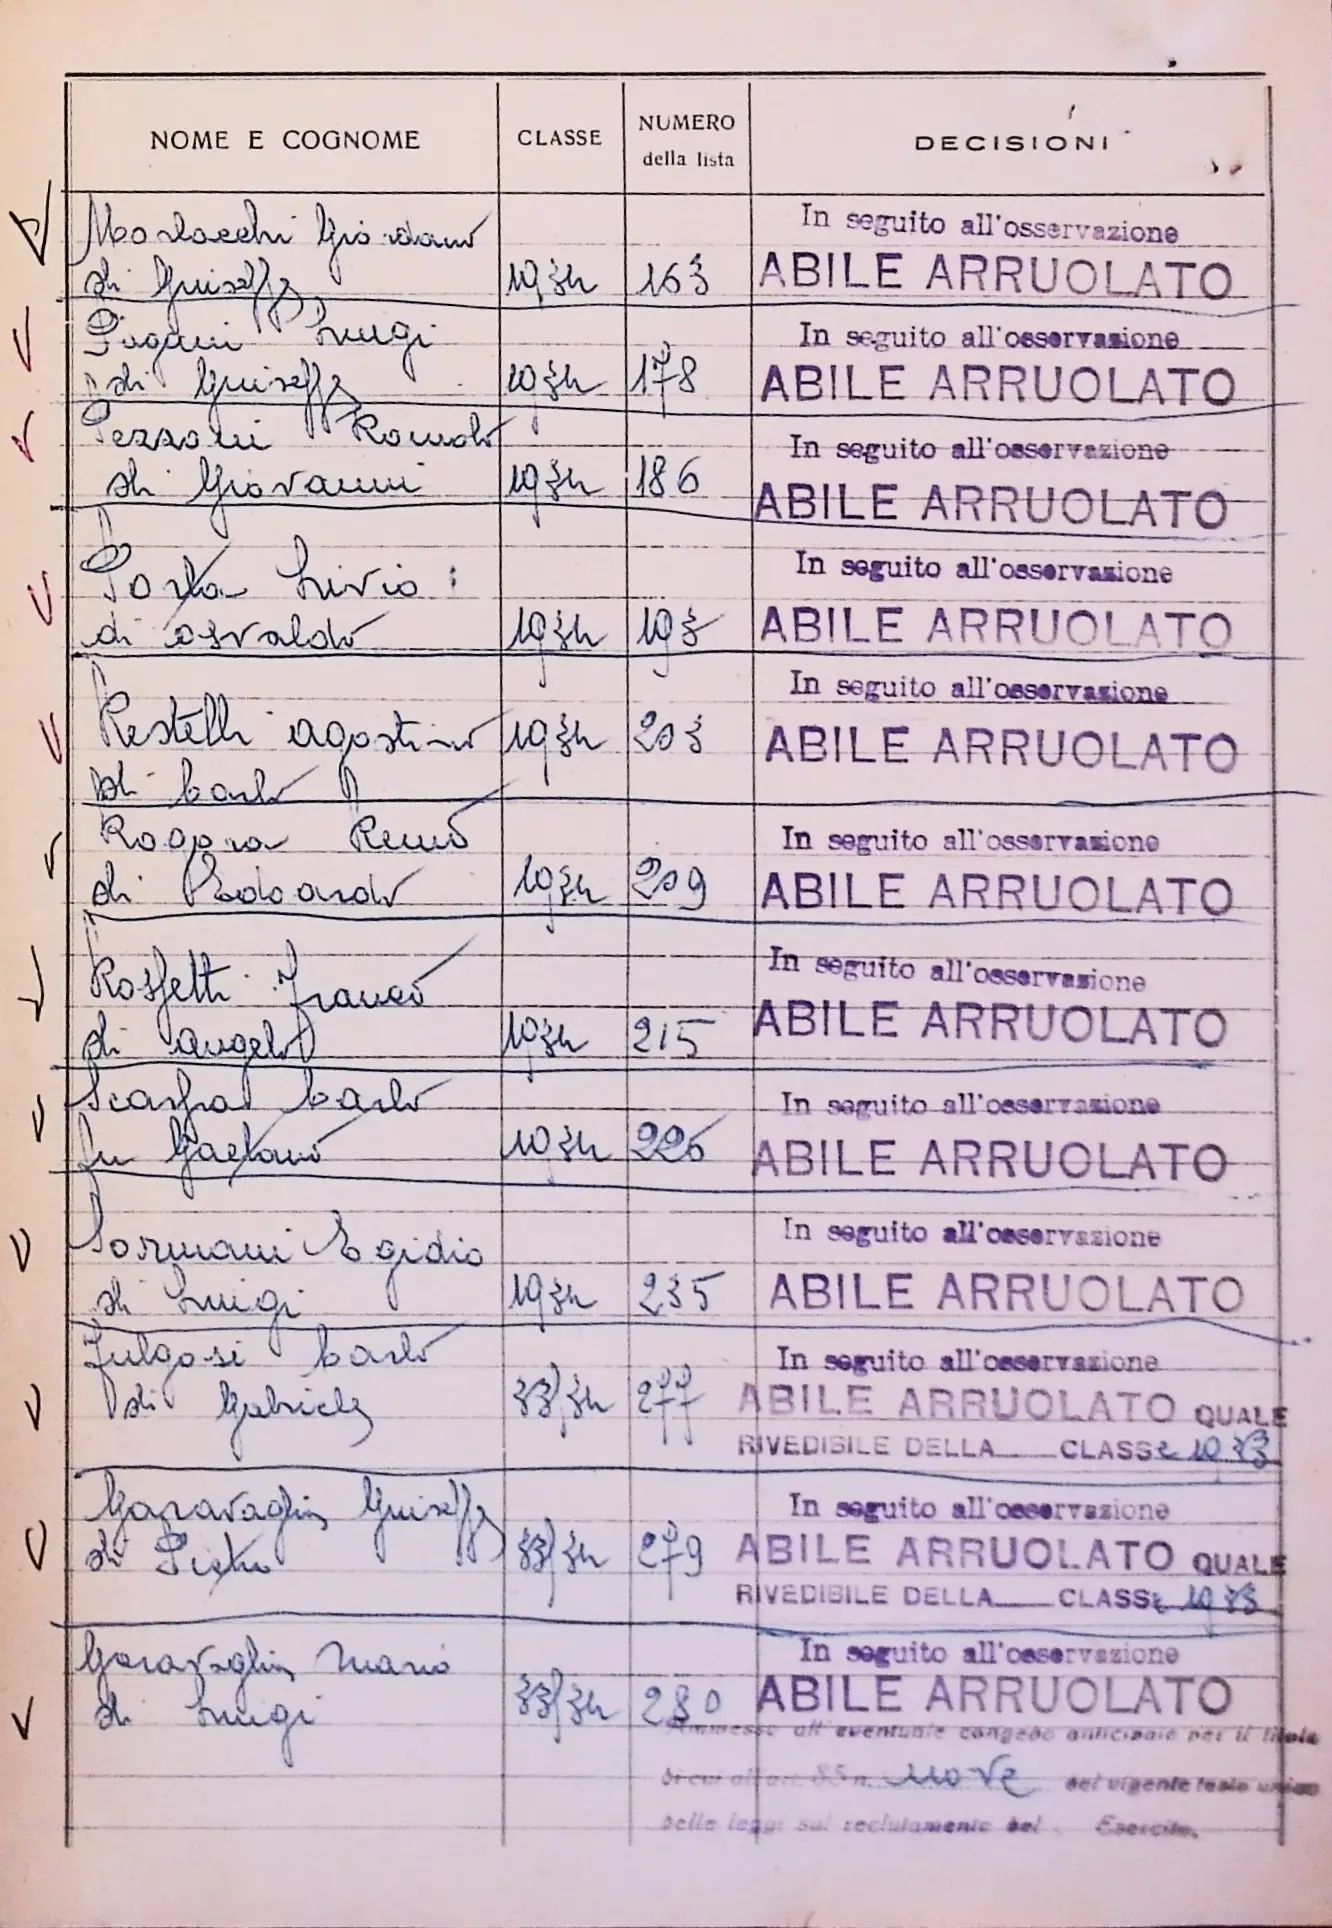 NOME E COGNOME CLASSE NUMERO della lista DECISIONI
Morlacchi Giordano In seguito all'osservazione
di Giuseppe 1934 163 ABILE ARRUOLATO
Pagani Luigi In seguito all'osservazione
di Giuseppe 1934 178 ABILE ARRUOLATO
Pezzoni Romolo In seguito all'osservazione
di Giovanni 1934 186 ABILE ARRUOLATO
Porta Livio In seguito all'osservazione
di Osvaldo 1934 193 ABILE ARRUOLATO
In seguito all'osservazione
Restelli Agostino 1934 203 ABILE ARRUOLATO
di Carlo
Rogora Remo In seguito all'osservazione
di Edoardo 1934 209 ABILE ARRUOLATO
Rossetti Franco In seguito all'osservazione
di Angelo 1934 215 ABILE ARRUOLATO
Scarpa Carlo In seguito all'osservazione
fu Gaetano 1934 226 ABILE ARRUOLATO
Sormani Egidio In seguito all'osservazione
di Luigi 1934 235 ABILE ARRUOLATO
Fulgosi Carlo In seguito all'osservazione
di Gabriele 33/34 277 ABILE ARRUOLATO QUALE
RIVEDIBILE DELLA CLASSE 1933
Garavaglia Giuseppe In seguito all'osservazione
di Pietro 33/34 279 ABILE ARRUOLATO QUALE
RIVEDIBILE DELLA CLASSE 1933
Garavaglia Mario In seguito all'osservazione
di Luigi 33/34 280 ABILE ARRUOLATO
Ammesso all'eventuale congedo anticipato per il titolo
di cui all'art. 85 n. nove del vigente testo unico
delle leggi sul reclutamento del Esercito.